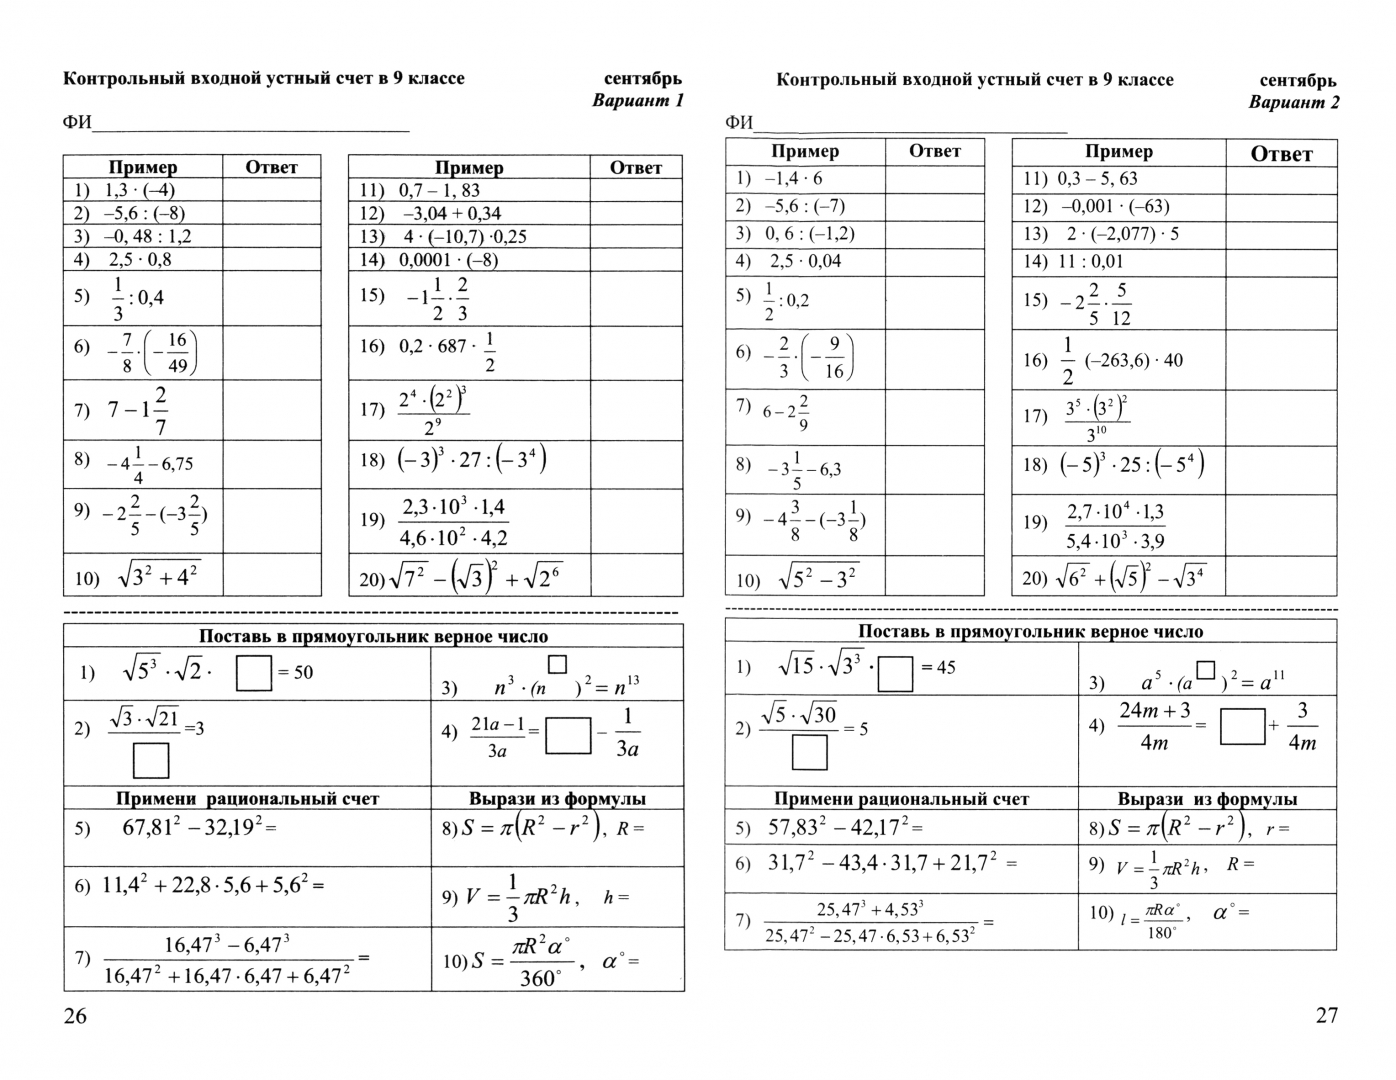 Контрольный входной устный счет в 9 классе сентябрь
Вариант 1
ФИ____________________
Пример Ответ
1) 1,3 · (–4)
2) –5,6 : (–8)
3) –0, 48 : 1,2
4) 2,5 · 0,8
5) 1/3 : 0,4
6) –7/8 · (–16/49)
7) 7 – 1 2/7
8) –4 1/4 – 6,75
9) –2 2/5 – (–3 2/5)
10) √(3² + 4²)
Пример Ответ
11) 0,7 – 1, 83
12) –3,04 + 0,34
13) 4 · (–10,7) ·0,25
14) 0,0001 · (–8)
15) –1 1/2 · 2/3
16) 0,2 · 687 · 1/2
17) 2⁴ · (2²)³ / 2⁹
18) (–3)³ · 27 : (–3⁴)
19) 2,3 · 10³ · 1,4 / 4,6 · 10² · 4,2
20) √7² – (√3)² + √2⁶
Поставь в прямоугольник верное число
1) √5³ · √2 · □ = 50
3) n³ · (n□)² = n¹³
2) √3 · √21 / □ =3
4) 21a – 1 / 3a = □ – 1/3a
Примени рациональный счет Вырази из формулы
5) 67,81² – 32,19² =
8) S = π(R² – r²), R =
6) 11,4² + 22,8 · 5,6 + 5,6² =
9) V = 1/3 πR²h, h =
7) 16,47³ – 6,47³ / 16,47² + 16,47 · 6,47 + 6,47² =
10) S = πR²α° / 360°, α° =
26
Контрольный входной устный счет в 9 классе сентябрь
Вариант 2
ФИ____________________
Пример Ответ
1) –1,4 · 6
2) –5,6 : (–7)
3) 0, 6 : (–1,2)
4) 2,5 · 0,04
5) 1/2 : 0,2
6) –2/3 · (–9/16)
7) 6 – 2 2/9
8) –3 1/5 – 6,3
9) –4 3/8 – (–3 1/8)
10) √(5² – 3²)
Пример Ответ
11) 0,3 – 5, 63
12) –0,001 · (–63)
13) 2 · (–2,077) · 5
14) 11 : 0,01
15) –2 2/5 · 5/12
16) 1/2 (–263,6) · 40
17) 3⁵ · (3²)² / 3¹⁰
18) (–5)³ · 25 : (–5⁴)
19) 2,7 · 10⁴ · 1,3 / 5,4 · 10³ · 3,9
20) √6² + (√5)² – √3⁴
Поставь в прямоугольник верное число
1) √15 · √3³ · □ = 45
3) a⁵ · (a□)² = a¹¹
2) √5 · √30 / □ = 5
4) 24m + 3 / 4m = □ + 3/4m
Примени рациональный счет Вырази из формулы
5) 57,83² – 42,17² =
8) S = π(R² – r²), r =
6) 31,7² – 43,4 · 31,7 + 21,7² =
9) V = 1/3 πR²h, R =
7) 25,47³ + 4,53³ / 25,47² – 25,47 · 6,53 + 6,53² =
10) l = πRα° / 180°, α° =
27